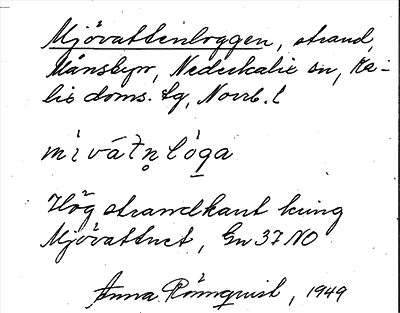 Mjövattenloggen, strand,
Månsbyn, Nederkalix sn, Ka-
lix doms. lg, Norrb. l
mìvátn̥lòga
Hög strandkant kring
Mjövattnet, Gn 37 NO
Anna Rönnquist, 1949